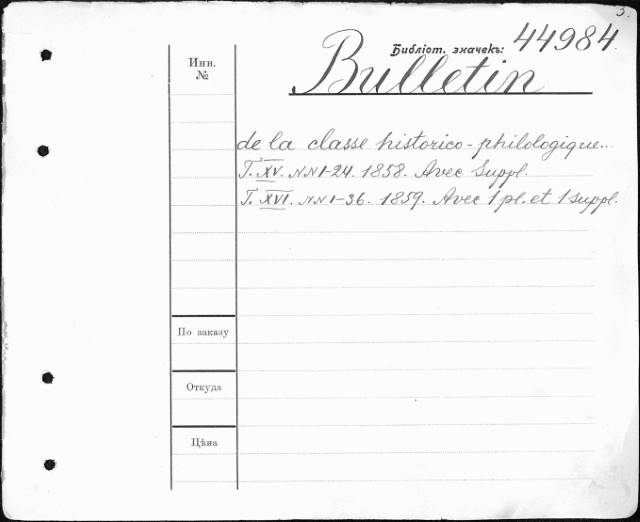 3.
Библіот. значекъ: 44984.
Bulletin
Инв.
№
de la classe historico-philologique...
T. XV. NN 1-24. 1858. Avec Suppl.
T. XVI. NN 1-36. 1859. Avec 1 pl. et 1 suppl.
По заказу
Откуда
Цѣна